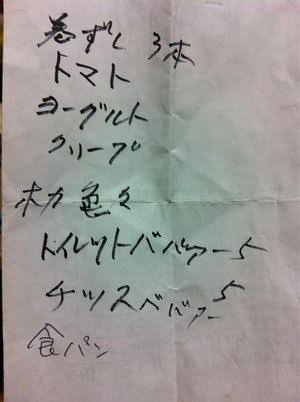 巻ずし 3本
トマト
ヨーグルト
クリープ
ホカ色々
トイレットババァー5
チッスベババァー5
食パン